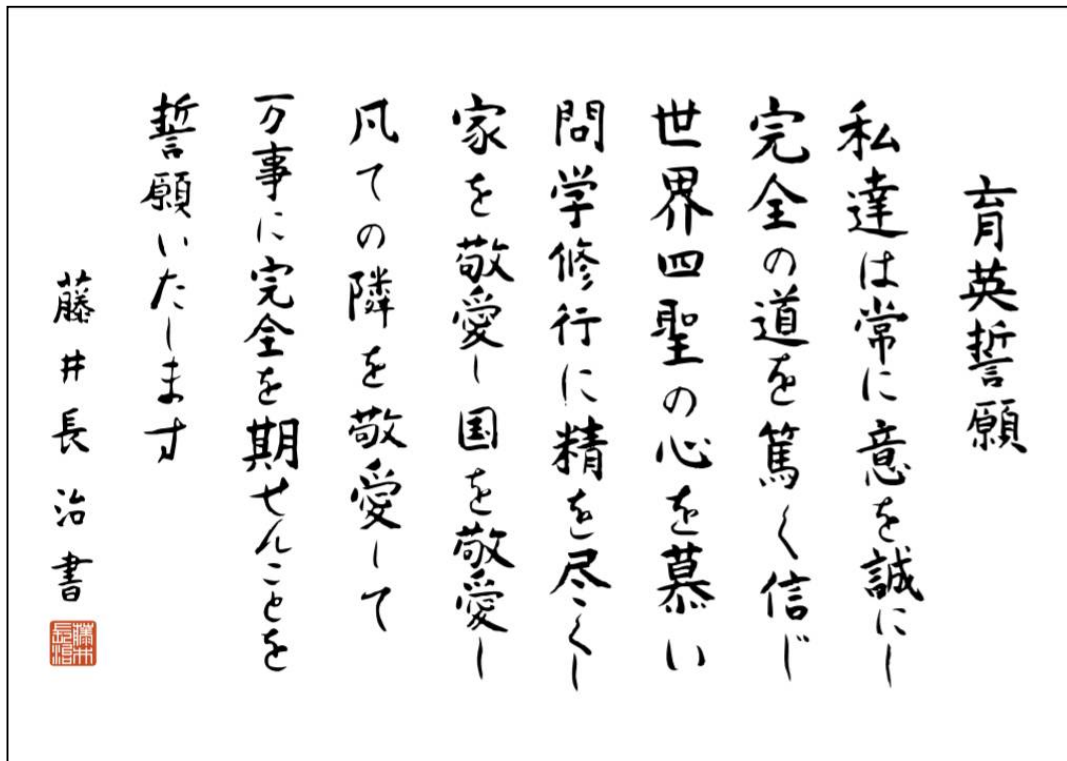 育英誓願
私達は常に意を誠にし
完全の道を篤く信じ
世界四聖の心を慕い
問学修行に精を尽くし
家を敬愛し国を敬愛し
凡ての隣を敬愛して
万事に完全を期せんことを
誓願いたします
藤井長治書
藤井長治